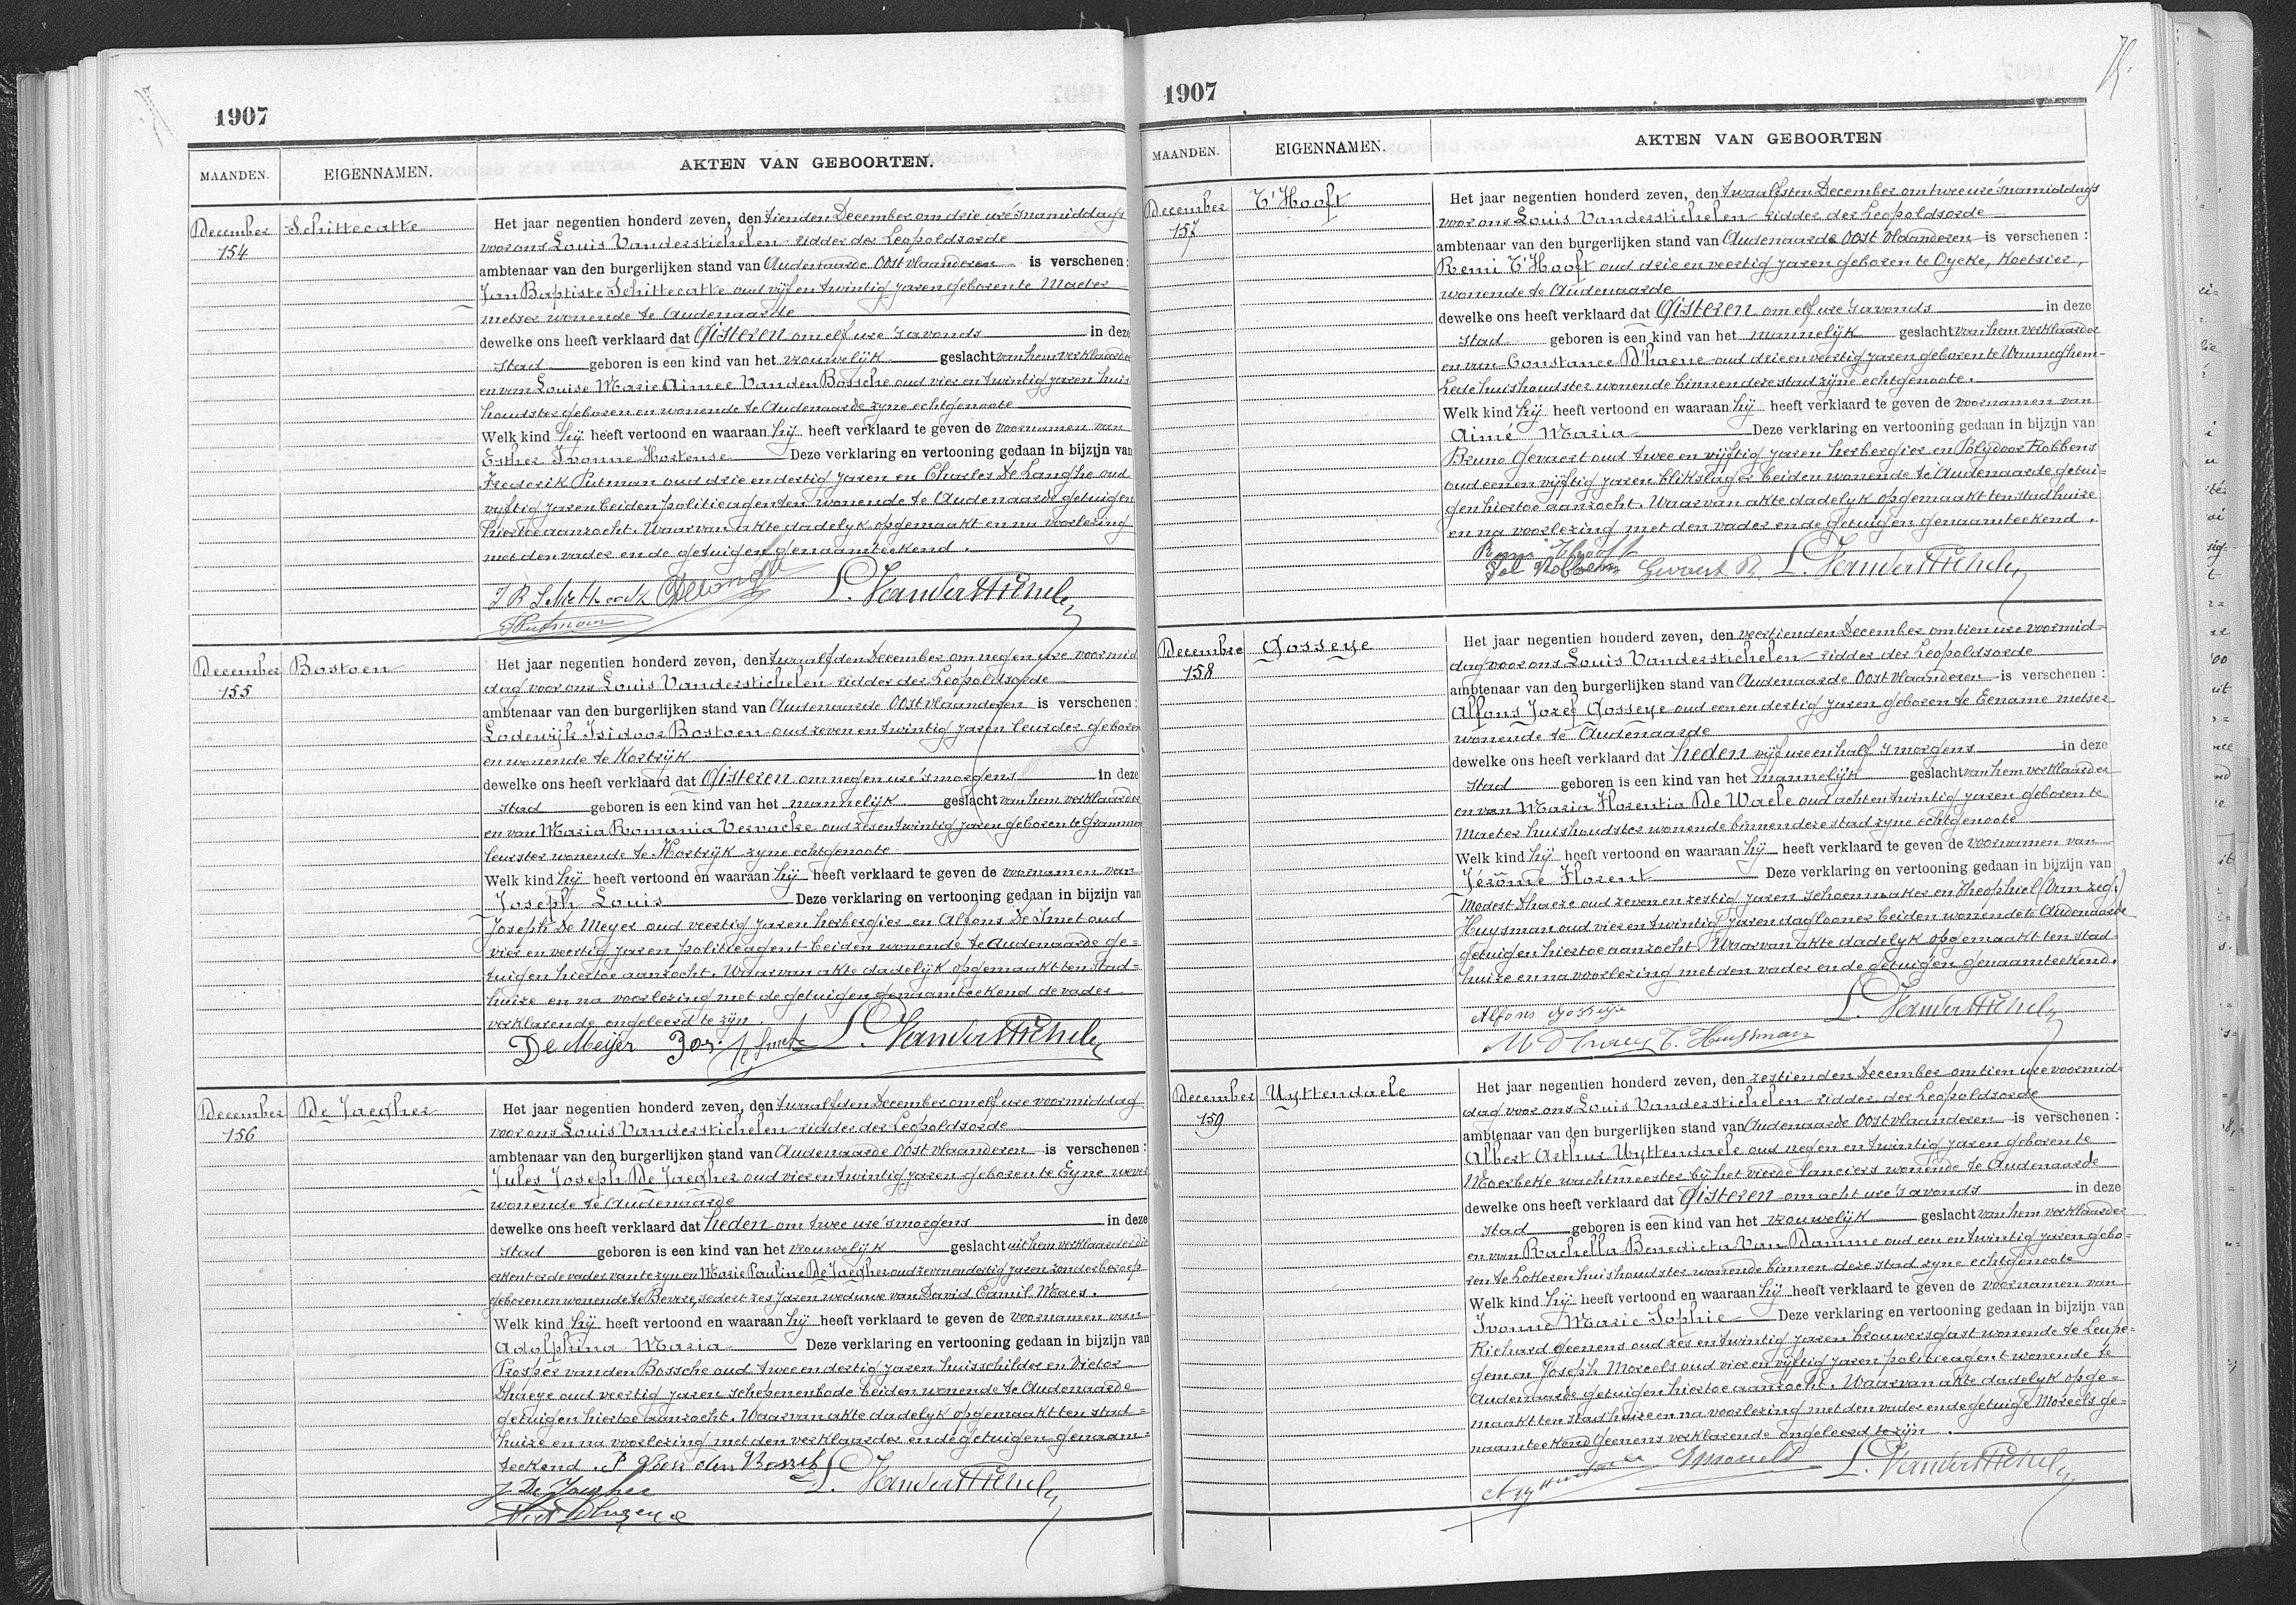 1907
MAANDEN.
EIGENNAMEN.
AKTEN VAN GEBOORTEN.
December
154
Schittecatte
Het jaar negentien honderd zeven, den tienden December om drie ure 's namiddags
voor ons Louis Vanderstichelen ridder der Leopoldsorde
ambtenaar van den burgerlijken stand van Audenaarde Oost Vlaanderen is verschenen:
Jan Baptiste Schittecatte oud vijf en twintig jaren geboren te Maeter
metser wonende te Audenaarde
dewelke ons heeft verklaard dat Gisteren om elf ure 's avonds in deze
stad geboren is een kind van het vrouwelijk geslacht van hem verklaarder
en van Louise Marie Aimee Van den Bossche oud vier en twintig jaren huis
houdster geboren en wonende te Audenaarde zyne echtgenoote
Welk kind hij heeft vertoond en waaraan hij heeft verklaard te geven de voornamen van
Esther Ivonne Hortense Deze verklaring en vertooning gedaan in bijzijn van
Frederik Putman oud drie en dertig jaren en Charles De Langhe oud
vyftig jaren beiden politieagenten wonende te Audenaarde getuigen
hiertoe aanzocht. Waarvan akte dadelyk opgemaakt en na voorlezing
met den vader en de getuigen genaamteekend.
L. Vanderstichelen
December
155
Bostoen
Het jaar negentien honderd zeven, den twaalfden December om negen ure voormid
dag voor ons Louis Vanderstichelen ridder der Leopoldsorde
ambtenaar van den burgerlijken stand van Audenaarde Oost Vlaanderen is verschenen:
Lodewijk Isidoor Bostoen oud zeven en twintig jaren leurder geboren
en wonende te Kortrijk
dewelke ons heeft verklaard dat Gisteren om negen ure 's morgens in deze
stad geboren is een kind van het mannelijk geslacht van hem verklaarder
en van Maria Romania Vervacke oud zes en twintig jaren geboren te Grammen
leurster wonende te Kortrijk zyne echtgenoote
Welk kind hij heeft vertoond en waaraan hij heeft verklaard te geven de voornamen van
Joseph Louis Deze verklaring en vertooning gedaan in bijzijn van
Joseph De Meyer oud veertig jaren herbergier en Alfons De Smet oud
vier en veertig jaren politieagent beiden wonende te Audenaarde ge=
tuigen hiertoe aanzocht. Waarvan akte dadelijk opgemaakt ten stad=
huize en na voorlezing met de getuigen genaamteekend de vader
verklarende ongeleerd te zijn.
De Meijer Jos. De Smet L. Vanderstichelen
December
156
De Jaegher
Het jaar negentien honderd zeven, den twaalfden December om elf ure voormiddag
voor ons Louis Vanderstichelen ridder der Leopoldsorde
ambtenaar van den burgerlijken stand van Audenaarde Oost Vlaanderen is verschenen:
Jules Joseph De Jaegher oud vier en twintig jaren geboren te Eyne wever
wonende te Audenaarde
dewelke ons heeft verklaard dat heden om twee ure 's morgens in deze
Stad geboren is een kind van het vrouwelijk geslacht uit hem verklaarder die
erkent er de vader van te zyn en Marie Pauline De Jaegher oud zeven en dertig jaren zonder beroep
geboren en wonende te Bevere, sedert zes jaren weduwe van David Camil Maes.
Welk kind hij heeft vertoond en waaraan hij heeft verklaard te geven de voornamen van
Adolphina Maria Deze verklaring en vertooning gedaan in bijzijn van
Prosper van den Bossche oud twee en dertig jaren huisschilder en Victor
Dhaeye oud veertig jaren schepenenbode beiden wonende te Audenaarde
getuigen hiertoe aanzocht. Waarvan akte dadelyk opgemaakt ten stad=
huize en na voorlezing met den verklaarder en de getuigen genaam=
teekend. P Van den Bossche L. Vanderstichelen
J. De Jaegher
1907
MAANDEN.
EIGENNAMEN.
AKTEN VAN GEBOORTEN
December
157
T'Hooft
Het jaar negentien honderd zeven, den twaalfsten December om twee ure 's namiddags
voor ons Louis Vanderstichelen ridder der Leopoldsorde
ambtenaar van den burgerlijken stand van Audenaarde Oost Vlaanderen is verschenen:
Remi T'Hooft oud drie en veertig jaren geboren te Oycke, Koetsier,
wonende te Audenaarde
dewelke ons heeft verklaard dat Gisteren om elf ure 's avonds in deze
Stad geboren is een kind van het mannelijk geslacht van hem verklaarder
en van Constance D'haene oud drie en veertig jaren geboren te Wanneghem-
Lede huishoudster wonende binnen deze stad zijne echtgenoote.
Welk kind hij heeft vertoond en waaraan hij heeft verklaard te geven de voornamen van
Aimé Maria Deze verklaring en vertooning gedaan in bijzijn van
Bruno Gevaert oud twee en vijftig jaren herbergier en Polydoor Robbens
oud een en vijftig jaren blikslager beiden wonende te Audenaarde getui=
gen hiertoe aanzocht. Waarvan akte dadelyk opgemaakt ten stadhuize
en na voorlezing met den vader en de getuigen genaamteekend.
Remi Thooft
Pol Robbens Gevaert B. L. Vanderstichelen
Decembre
158
Gosseye
Het jaar negentien honderd zeven, den veertienden December om tien ure voormid=
dag voor ons Louis Vanderstichelen ridder der Leopoldsorde
ambtenaar van den burgerlijken stand van Audenaarde Oost Vlaanderen is verschenen:
Alfons Jozef Gosseye oud een en dertig jaren geboren te Eename metser
wonende te Audenaarde
dewelke ons heeft verklaard dat heden vijf ure en half 's morgens in deze
Stad geboren is een kind van het mannelijk geslacht van hem verklaarder
en van Maria Florentia De Waele oud acht en twintig jaren geboren te
Maeter huishoudster wonende binnen deze stad zyne echtgenoote
Welk kind hij heeft vertoond en waaraan hij heeft verklaard te geven de voornamen van
Jérôme Florent Deze verklaring en vertooning gedaan in bijzijn van
Modest Dhaeze oud zeven en zestig jaren schoenmaker en Theophiel (Van zeg.)
Huysman oud vier en twintig jaren daglooner beiden wonende te Audenaarde
getuigen hiertoe aanzocht. Waarvan akte dadelyk opgemaakt ten stad-
huize en na voorlezing met den vader en de getuigen genaamteekend.
Alfons Gosseye L. Vanderstichelen
T. Huysman
December
159
Uyttendaele
Het jaar negentien honderd zeven, den zestienden December om tien ure voormid=
dag voor ons Louis Vanderstichelen ridder der Leopoldsorde
ambtenaar van den burgerlijken stand van Audenaarde Oost Vlaanderen is verschenen:
Albert Arthur Uyttendaele oud negen en twintig jaren geboren te
Moerbeke wachtmeester bij het vierde lanciers wonende te Audenaarde
dewelke ons heeft verklaard dat Gisteren om acht ure 's avonds in deze
Stad geboren is een kind van het vrouwelijk geslacht van hem verklaarder
en van Rachella Benedicta Van Damme oud een en twintig jaren gebo=
ren te Lokeren huishoudster wonende binnen deze stad zyne echtgenoote
Welk kind hij heeft vertoond en waaraan hij heeft verklaard te geven de voornamen van
Ivonne Marie Sophie Deze verklaring en vertooning gedaan in bijzijn van
Richard Geenens oud zes en twintig jaren brouwersgast wonende te Leupe=
gem en Joseph Moreels oud vier en vijftig jaren politieagent wonende te
Audenaarde getuigen hiertoe aanzocht. Waarvan akte dadelyk opge=
maakt ten stadhuize en na voorlezing met den vader en de getuige Moreels ge=
naamteekend Geenens verklarende ongeleerd te zijn.
L. Vanderstichelen